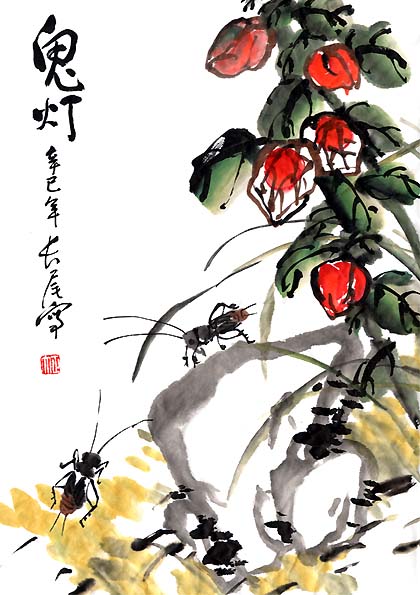 鬼灯
辛巳年长屋写